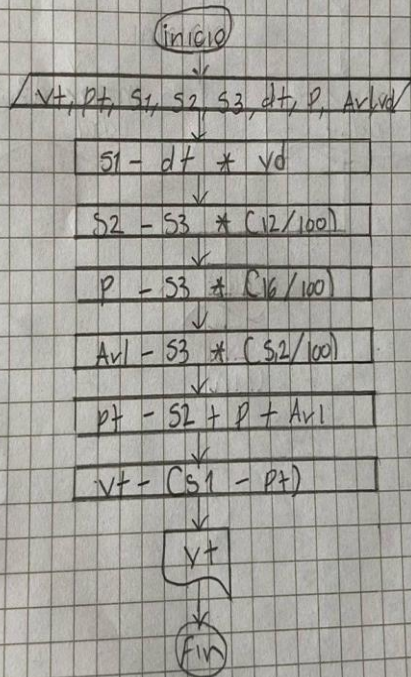 inicio
vt, pt, S1, S2, S3, dt, P, Arl vd
S1 - dt * vd
S2 - S3 * (12/100)
P - S3 * (16/100)
Arl - S3 * (5,2/100)
pt - S2 + P + Arl
vt - (S1 - Pt)
vt
Fin